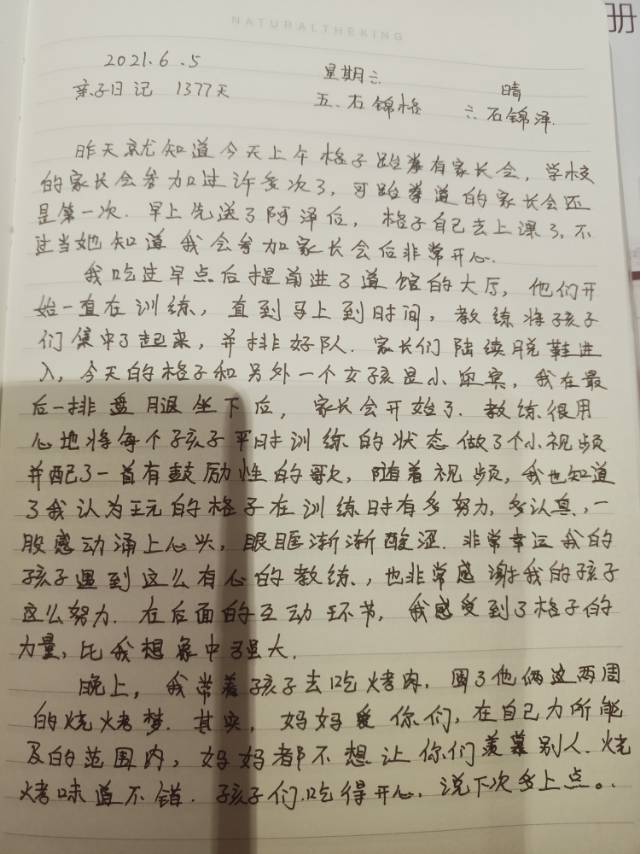 册
NATURALTHEKING
2021.6.5 星期六 晴
亲子日记 1377天 五、石锦格 六石锦泽.
昨天就知道今天上午格子跆拳有家长会,学校
的家长会参加过许多次了,可跆拳道的家长会还
是第一次.早上先送了阿泽后,格子自己去上课了.不
过当她知道我会参加家长会后非常开心.
我吃过早点后提前进了道馆的大厅,他们开
始一直在训练,直到马上到时间,教练将孩子
们集中了起来,并排好队.家长们陆续脱鞋进
入,今天的格子和另外一个女孩是小迎宾,我在最
后一排盘腿坐下后,家长会开始了.教练很用
心地将每个孩子平时训练的状态做了个小视频
并配了一首有鼓励性的歌,随着视频,我也知道
了我认为玩的格子在训练时有多努力,多认真,一
股感动涌上心头,眼眶渐渐酸涩.非常幸运我的
孩子遇到这么有心的教练,也非常感谢我的孩子
这么努力.在后面的互动环节,我感受到了格子的
力量,比我想象中强大.
晚上,我带着孩子去吃烤肉.圆了他俩这两周
的烧烤梦.其实,妈妈爱你们,在自己力所能
及的范围内,妈妈都不想让你们羡慕别人.烧
烤味道不错.孩子们吃得开心.说下次多上点。.